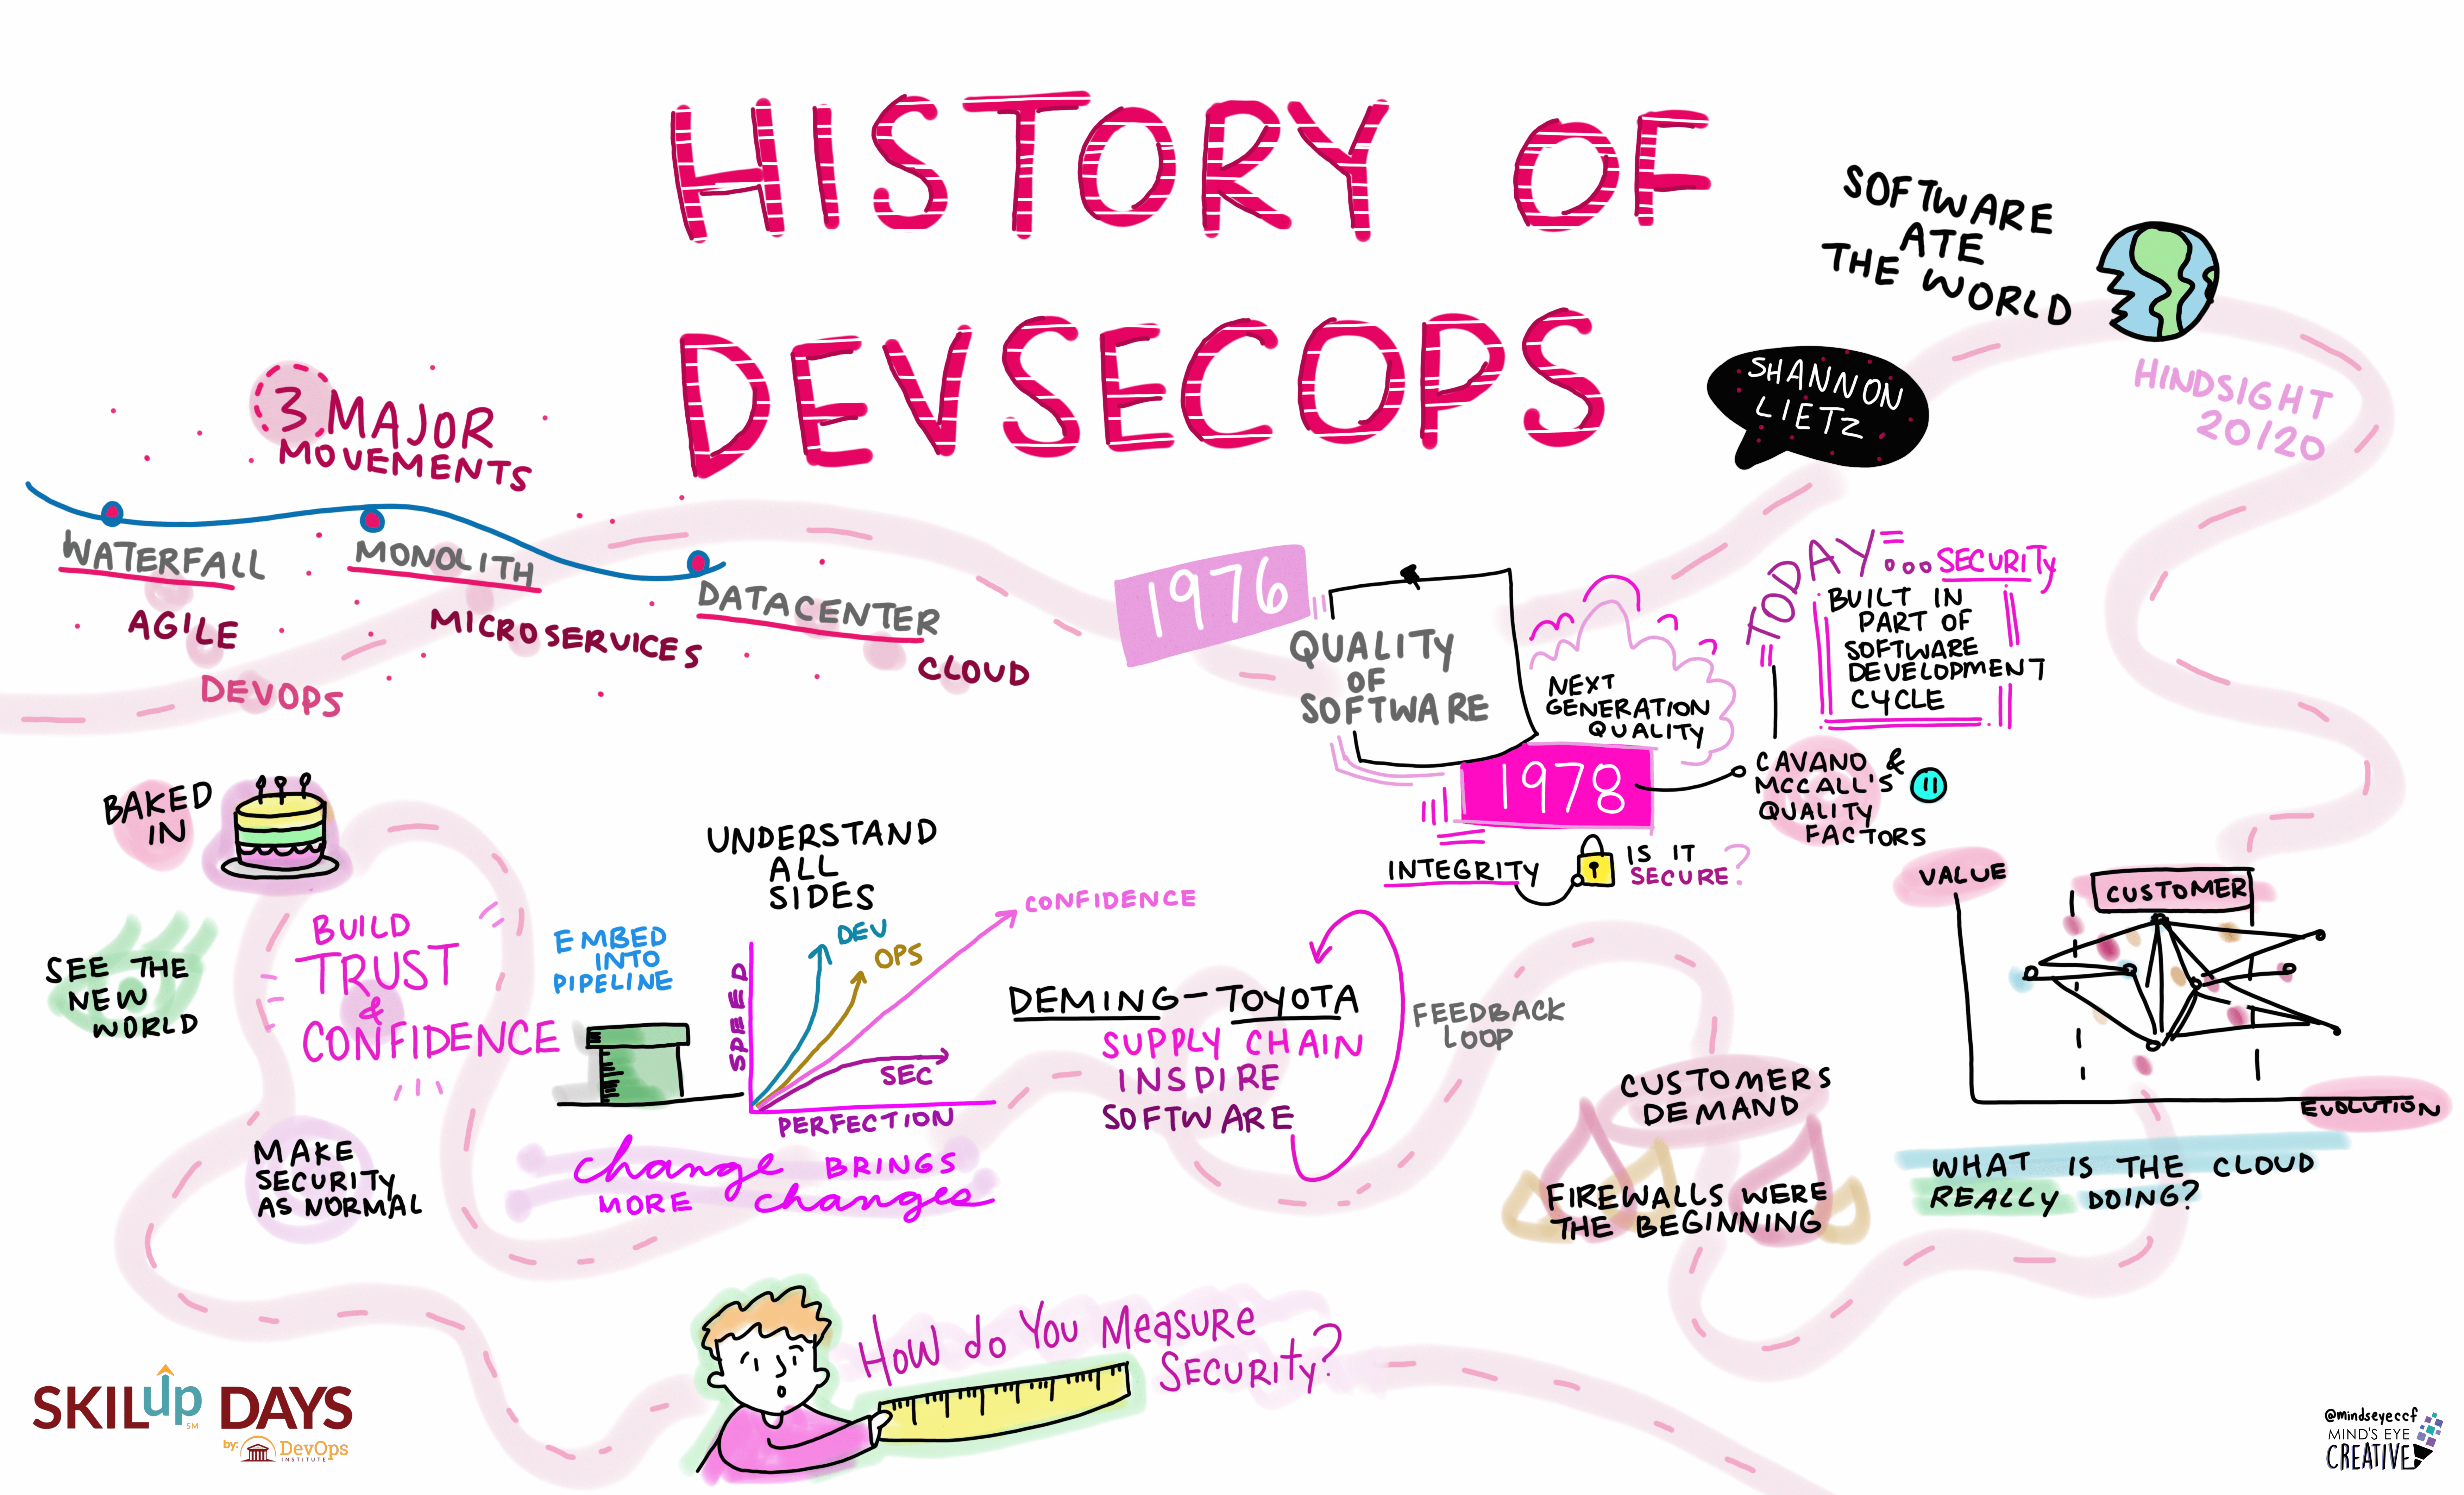 HISTORY OF
DEVSECOPS
SOFTWARE
ATE
THE WORLD
HINDSIGHT
20/20
SHANNON
LIETZ
3 MAJOR
MOVEMENTS
WATERFALL
AGILE
DEVOPS
MONOLITH
MICROSERVICES
DATACENTER
CLOUD
1976
QUALITY
OF
SOFTWARE
NEXT
GENERATION
QUALITY
1978
TODAY... SECURITY
BUILT IN
PART OF
SOFTWARE
DEVELOPMENT
CYCLE
CAVANO &
MCCALL'S
QUALITY
FACTORS
11
INTEGRITY
IS IT
SECURE?
BAKED
IN
SEE THE
NEW
WORLD
BUILD
TRUST
&
CONFIDENCE
MAKE
SECURITY
AS NORMAL
EMBED
INTO
PIPELINE
UNDERSTAND
ALL
SIDES
SPEED
DEV
OPS
CONFIDENCE
SEC
PERFECTION
change BRINGS
MORE changes
DEMING-TOYOTA
SUPPLY CHAIN
INSPIRE
SOFTWARE
FEEDBACK
LOOP
CUSTOMERS
DEMAND
FIREWALLS WERE
THE BEGINNING
VALUE
CUSTOMER
EVOLUTION
WHAT IS THE CLOUD
REALLY DOING?
HOW do YOU MEASURE
SECURITY?
SKILup DAYS
SM
by: DevOps
INSTITUTE
@mindseyeccf
MIND'S EYE
CREATIVE